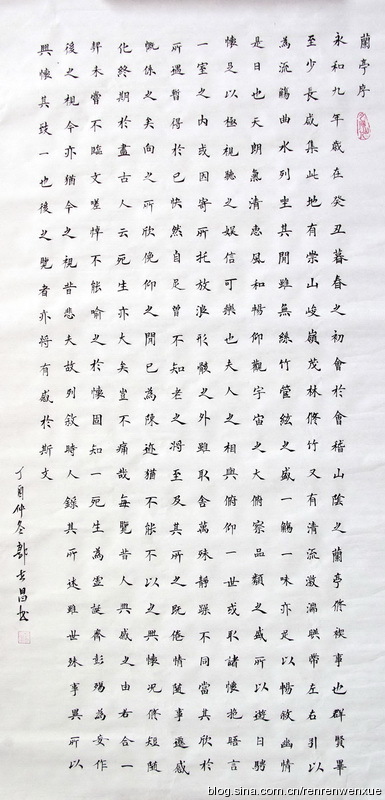 蘭亭序
永和九年歲在癸丑暮春之初會於會稽山陰之蘭亭脩稧事也群賢畢
至少長咸集此地有崇山峻嶺茂林脩竹又有清流激湍暎帶左右引以
為流觴曲水列坐其間雖無絲竹管絃之盛一觴一咏亦足以暢敘幽情
是日也天朗氣清惠風和暢仰觀宇宙之大俯察品類之盛所以遊目騁
懷足以極視聽之娛信可樂也夫人之相與俯仰一世或取諸懷抱晤言
一室之內或因寄所托放浪形骸之外雖取舍萬殊靜躁不同當其欣於
所遇暫得於己快然自足曾不知老之將至及其所之既倦情隨事遷感
慨係之矣向之所欣俛仰之間已為陳迹猶不能不以之興懷況脩短隨
化終期於盡古人云死生亦大矣豈不痛哉每覽昔人興感之由若合一
契未嘗不臨文嗟悼不能喻之於懷固知一死生為虛誕齊彭殤為妄作
後之視今亦猶今之視昔悲夫故列敘時人錄其所述雖世殊事異所以
興懷其致一也後之覽者亦將有感於斯文
丁酉仲冬昌書
blog.sina.com.cn/renrenwenxue